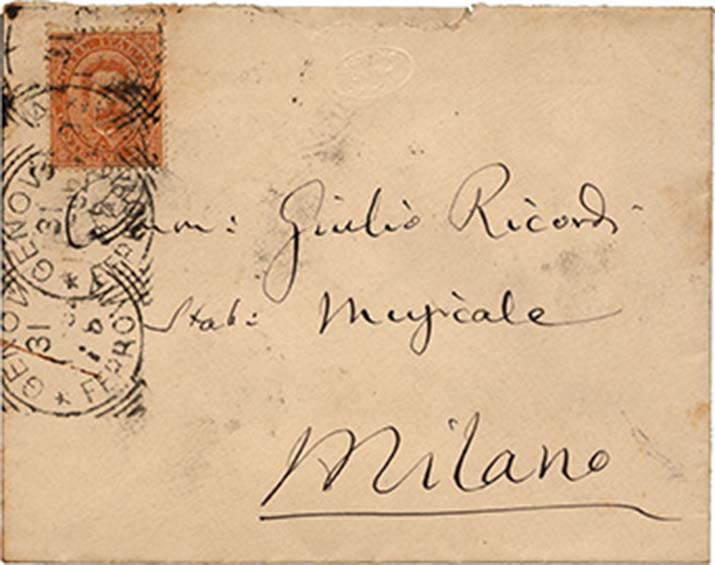 Comm: Giulio Ricordi
Stab: Musicale
Milano
GENOVA
31
FERROVIA
GENOVA
31
FERROVIA